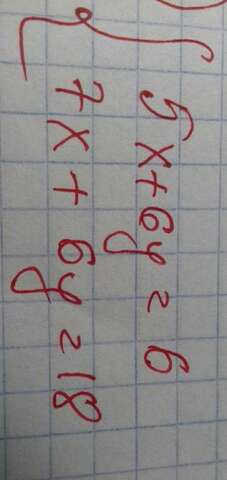 5x+6y=6
7x+6y=18